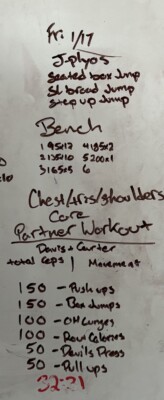 Fri 1/17
J-plyos
Seated box Jump
SL broad Jump
Step up Jump
Bench
1 95x12 4 185x2
2 135x10 5 200x1
3 165x5 6
Chest/tris/shoulders
Core
Partner Workout
Davis + Carter
total reps | Movement
150 - Push ups
150 - Box Jumps
100 - OH Lunges
100 - Row Calories
50 - Devils Press
50 - Pull ups
32:21